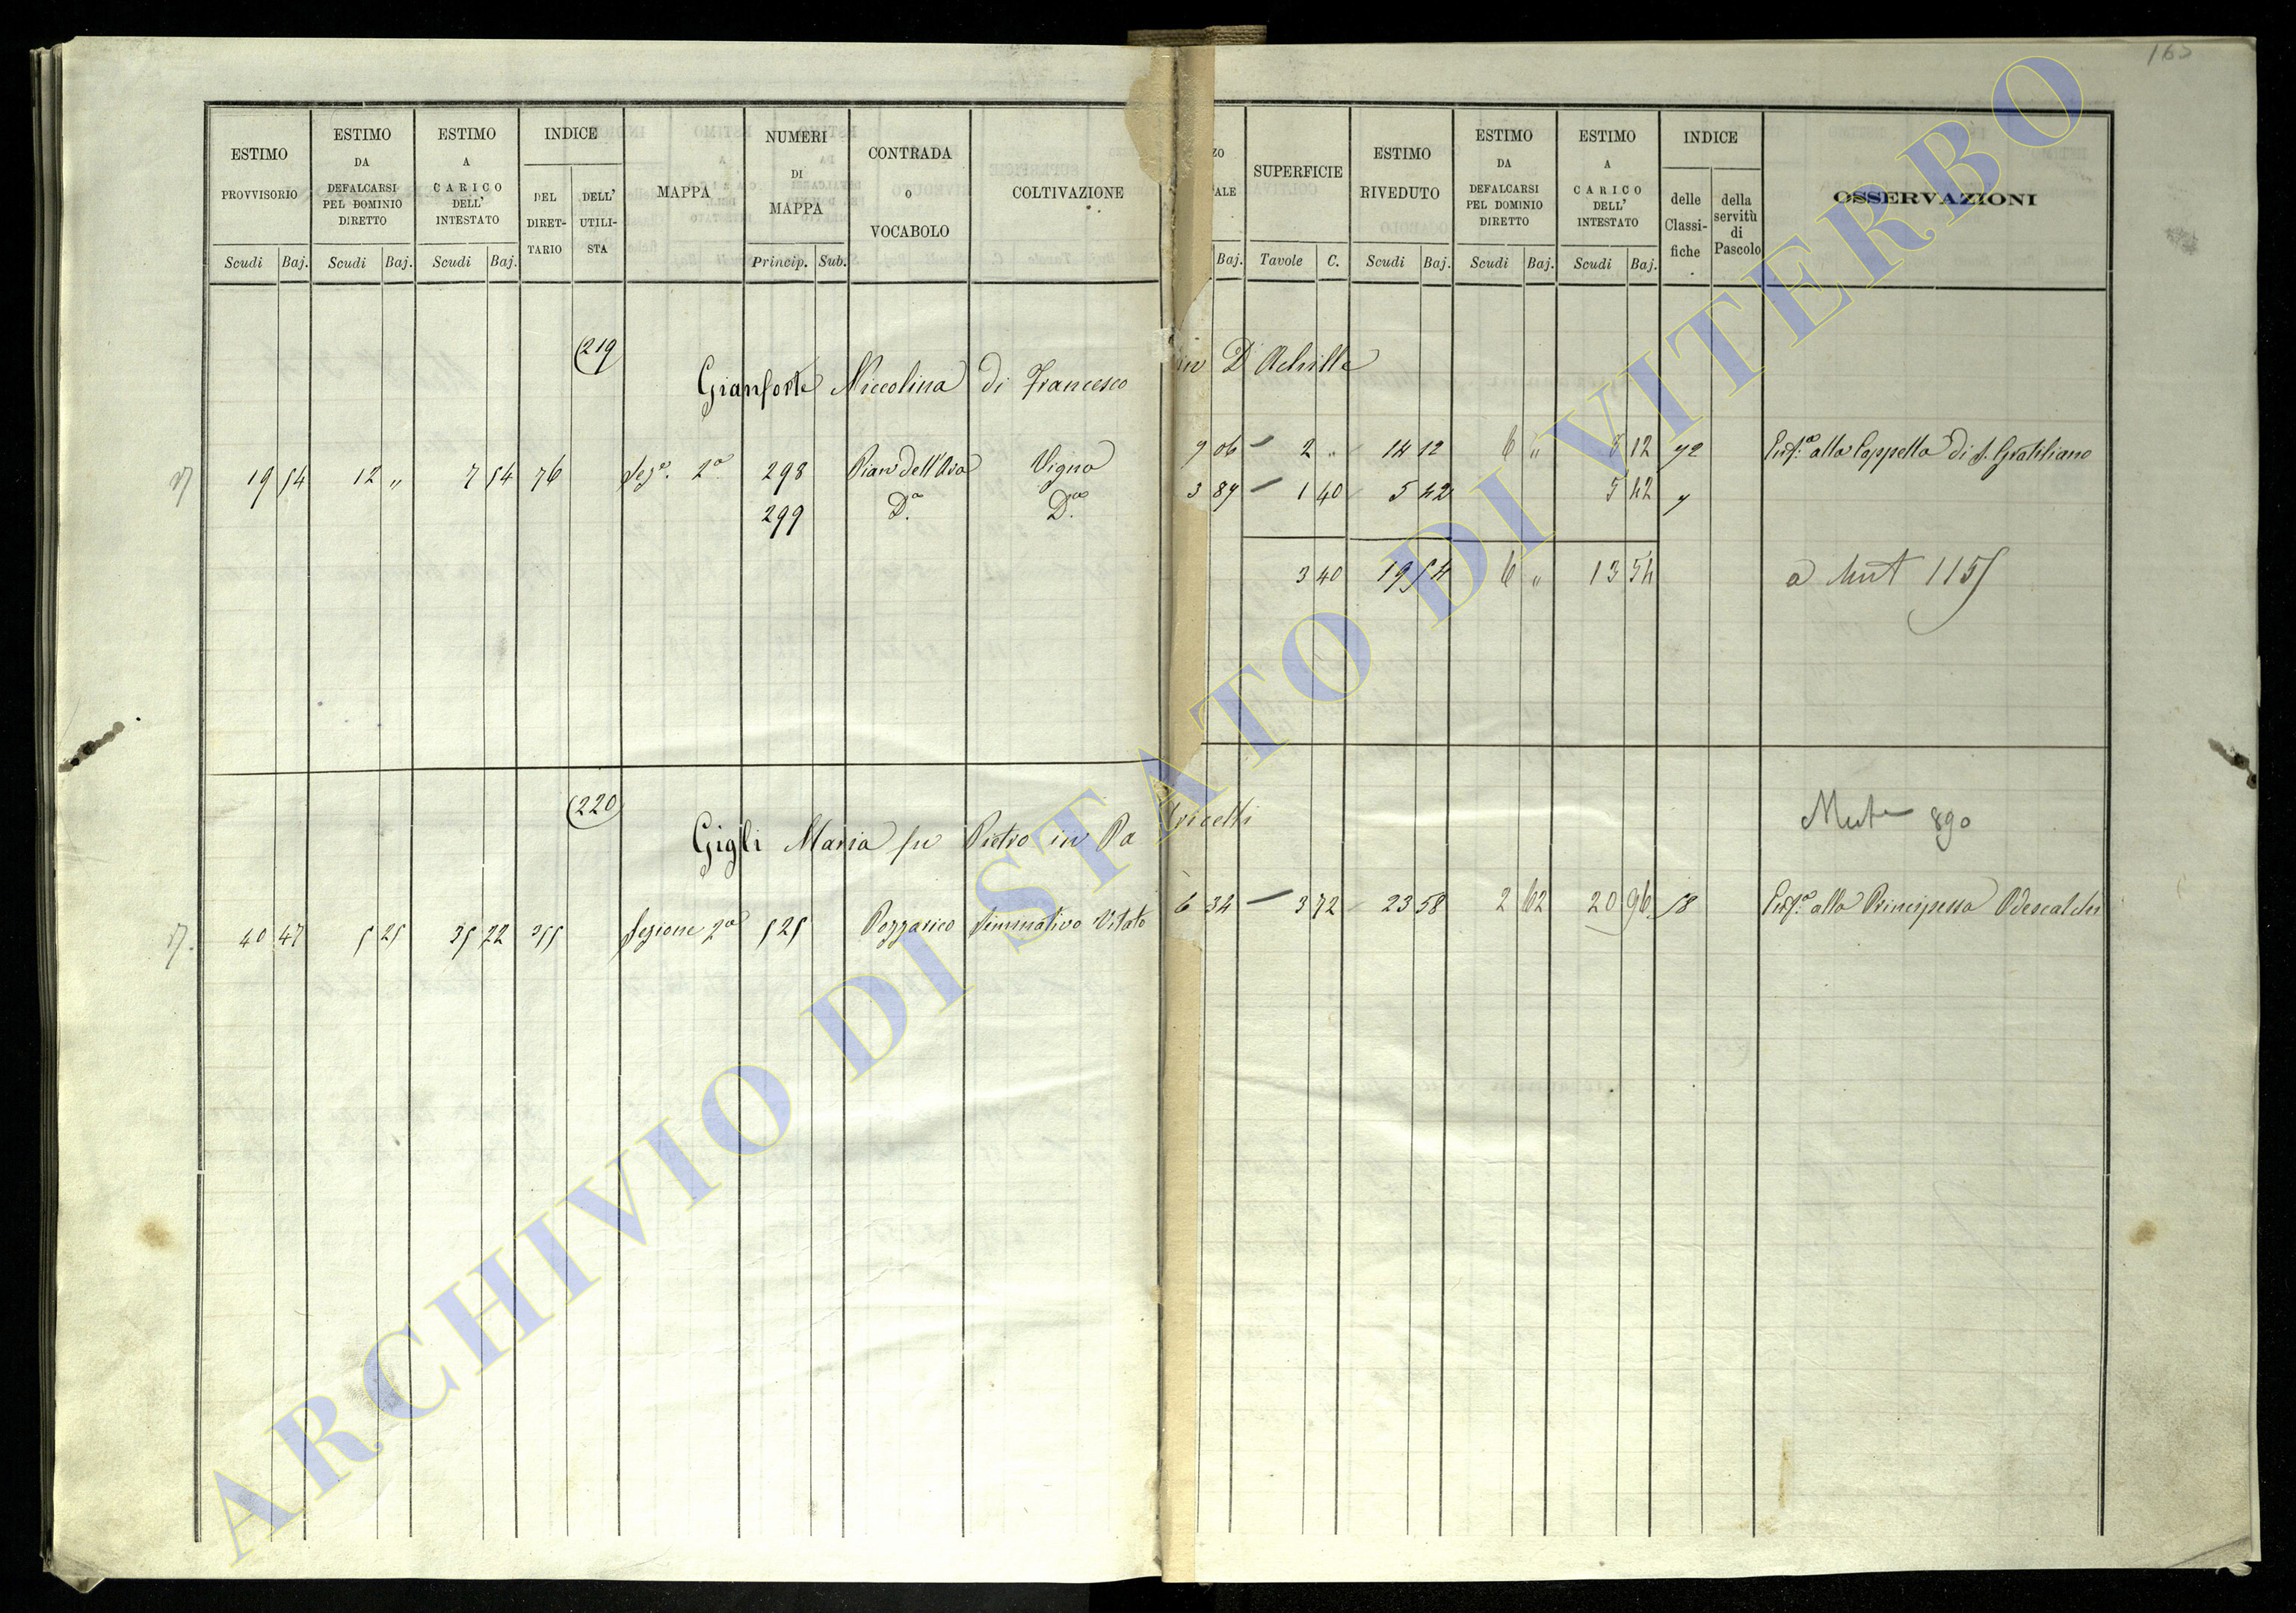 163
ESTIMO PROVVISORIO Scudi Baj.
ESTIMO DA DEFALCARSI PEL DOMINIO DIRETTO Scudi Baj.
ESTIMO A CARICO DELL' INTESTATO Scudi Baj.
INDICE DEL DIRET-TARIO DELL' UTILI-STA
MAPPA
NUMERI DI MAPPA Princip. Sub.
CONTRADA O VOCABOLO
COLTIVAZIONE
ZO ALE Baj.
SUPERFICIE Tavole C.
ESTIMO RIVEDUTO Scudi Baj.
ESTIMO DA DEFALCARSI PEL DOMINIO DIRETTO Scudi Baj.
ESTIMO A CARICO DELL' INTESTATO Scudi Baj.
INDICE delle Classi-fiche della servitù di Pascolo
OSSERVAZIONI
219
Gianforte Niccolina di Francesco in D'Achille
19 54 12 „ 7 54 76 Sez.e 2a 298 Pian dell'Ara Vigna 9 06 2 „ 14 12 6 „ 8 12 72 Enf.a alla Cappella di S. Gratiliano
299 Da. Da. 3 87 1 40 5 42 5 42 7
3 40 19 54 6 „ 13 54 a Mut 115
220
Gigli Maria fu Pietro in Pa tricelli
Mut 890
40 47 5 25 35 22 355 Sezione 2a 525 Pozzarico Seminativo Vitato 6 34 3 72 23 58 2 62 20 96 58 Enf.a alla Principessa Odescalchi
ARCHIVIO DI STATO DI VITERBO